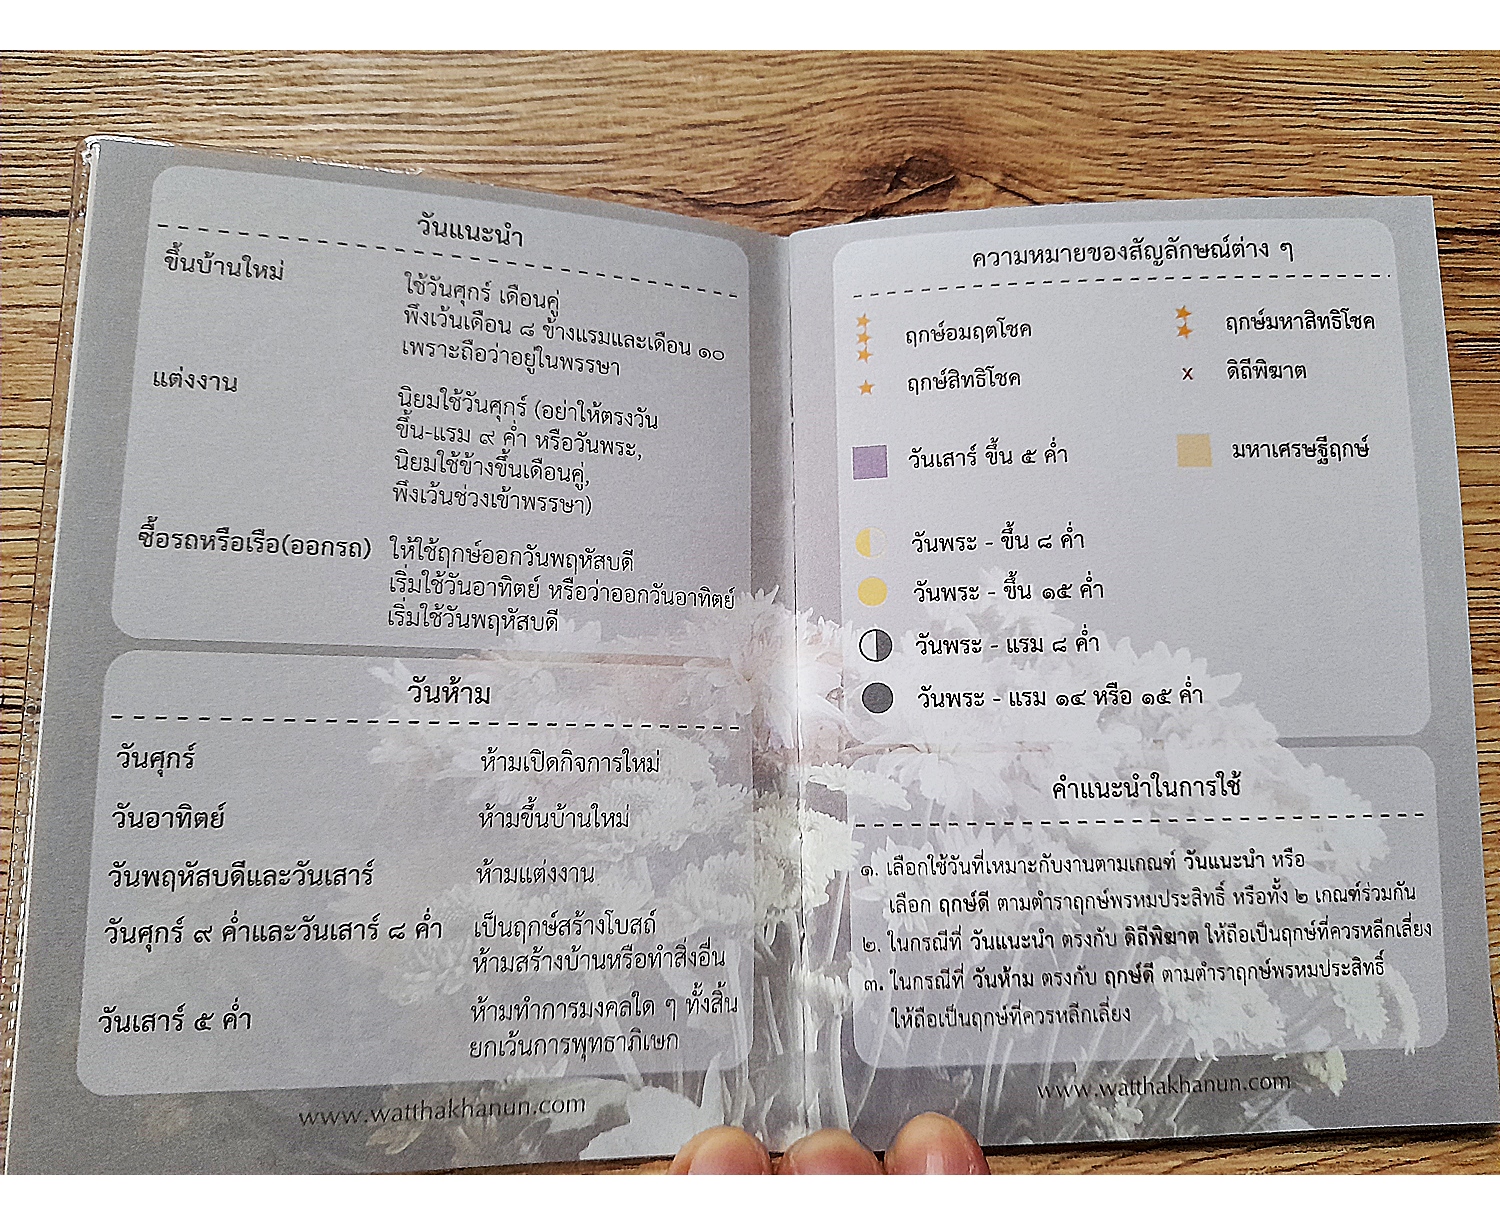 วันแนะนำ
ขึ้นบ้านใหม่
ใช้วันศุกร์ เดือนคู่
พึงเว้นเดือน ๘ ข้างแรมและเดือน ๑๐
เพราะถือว่าอยู่ในพรรษา
แต่งงาน
นิยมใช้วันศุกร์ (อย่าให้ตรงวัน
ขึ้น-แรม ๙ ค่ำ หรือวันพระ,
นิยมใช้ข้างขึ้นเดือนคู่,
พึงเว้นช่วงเข้าพรรษา)
ซื้อรถหรือเรือ(ออกรถ)
ให้ใช้ฤกษ์ออกวันพฤหัสบดี
เริ่มใช้วันอาทิตย์ หรือว่าออกวันอาทิตย์
เริ่มใช้วันพฤหัสบดี
วันห้าม
วันศุกร์ ห้ามเปิดกิจการใหม่
วันอาทิตย์ ห้ามขึ้นบ้านใหม่
วันพฤหัสบดีและวันเสาร์ ห้ามแต่งงาน
วันศุกร์ ๙ ค่ำและวันเสาร์ ๘ ค่ำ เป็นฤกษ์สร้างโบสถ์
ห้ามสร้างบ้านหรือทำสิ่งอื่น
วันเสาร์ ๕ ค่ำ ห้ามทำการมงคลใด ๆ ทั้งสิ้น
ยกเว้นการพุทธาภิเษก
www.watthakhanun.com
ความหมายของสัญลักษณ์ต่าง ๆ
ฤกษ์อมฤตโชค ฤกษ์มหาสิทธิโชค
ฤกษ์สิทธิโชค x ดิถีพิฆาต
วันเสาร์ ขึ้น ๕ ค่ำ มหาเศรษฐีฤกษ์
วันพระ - ขึ้น ๘ ค่ำ
วันพระ - ขึ้น ๑๕ ค่ำ
วันพระ - แรม ๘ ค่ำ
วันพระ - แรม ๑๔ หรือ ๑๕ ค่ำ
คำแนะนำในการใช้
๑. เลือกใช้วันที่เหมาะกับงานตามเกณฑ์ วันแนะนำ หรือ
เลือก ฤกษ์ดี ตามตำราฤกษ์พรหมประสิทธิ์ หรือทั้ง ๒ เกณฑ์ร่วมกัน
๒. ในกรณีที่ วันแนะนำ ตรงกับ ดิถีพิฆาต ให้ถือเป็นฤกษ์ที่ควรหลีกเลี่ยง
๓. ในกรณีที่ วันห้าม ตรงกับ ฤกษ์ดี ตามตำราฤกษ์พรหมประสิทธิ์
ให้ถือเป็นฤกษ์ที่ควรหลีกเลี่ยง
www.watthakhanun.com